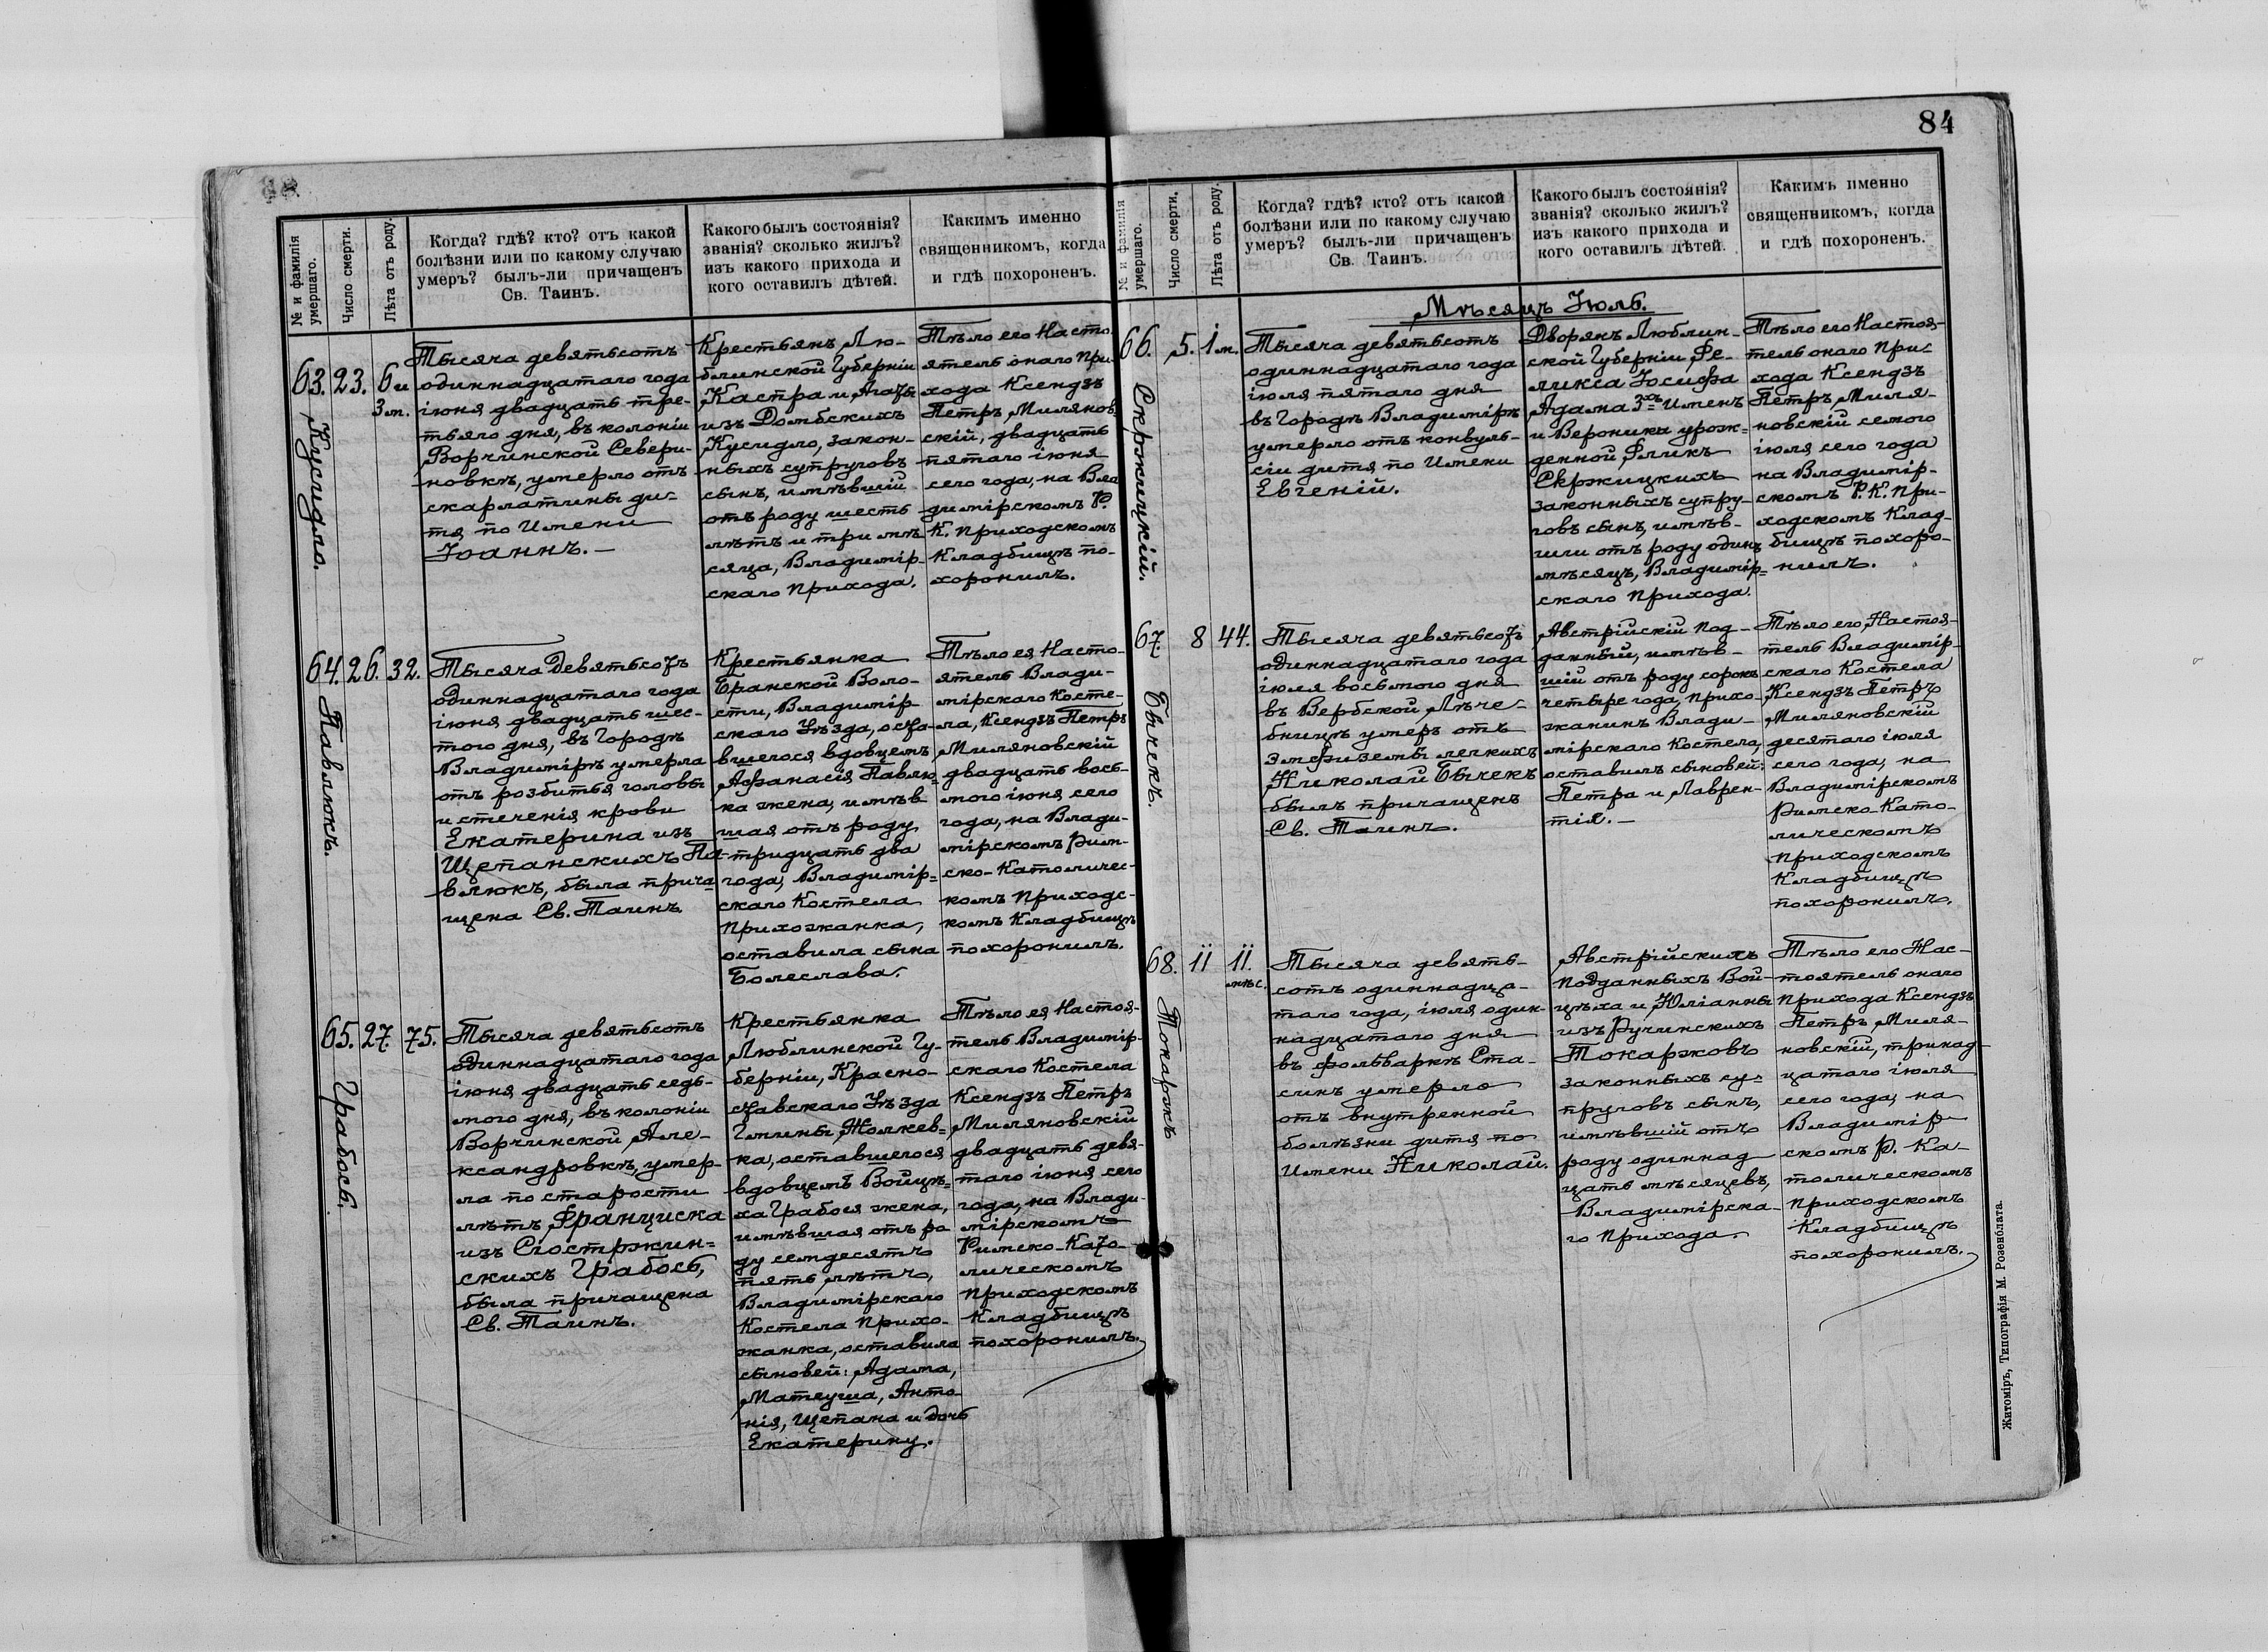 84
№ и фамилія
умершаго.
Число смерти.
Лѣта отъ роду.
Когда? гдѣ? кто? отъ какой
болѣзни или по какому случаю
умеръ? былъ-ли причащенъ
Св. Таинъ.
Какого былъ состоянія?
званія? сколько жилъ?
изъ какого прихода и
кого оставилъ дѣтей.
Какимъ именно
священникомъ, когда
и гдѣ похороненъ.
63.
Кусидло.
23.
6 и
3 м.
Тысяча девятьсотъ
одиннадцатаго года
іюня двадцать тре-
тьяго дня, въ колоніи
Ворчинской Севери-
новкѣ, умерло отъ
скарлатины ди-
тя по Имени
Іоаннъ.—
Крестьянъ Лю-
блинской Губерніи
Кастра и Агаты
изъ Домбскихъ
Кусидло, закон-
ныхъ супруговъ
сынъ, имѣвшій
отъ роду шесть
лѣтъ и три мѣ
сяца, Владимір-
скаго прихода.
Тѣло его Насто
ятель онаго При-
хода Ксендзъ
Петръ Миланов
скій, двадцать
пятаго іюня
сего года, на Вла
димірскомъ Р.
К. приходскомъ
Кладбищѣ по-
хоронилъ.
64.
Павлюкъ.
26.
32.
Тысяча Девятьсотъ
одиннадцатаго года
іюня двадцать шес-
того дня, въ Городѣ
Владимірѣ умерла
отъ розбитья головы
и стеченія крови
Екатерина изъ
Щепанскихъ Па-
влюкъ, была прича
щена Св. Таинъ.
Крестьянка
Бранской Воло-
сти, Владимір-
скаго Уѣзда, оста-
вшегося вдовцемъ
Афанасія Павлю-
ка жена, имѣв
шая отъ роду
тридцать два
года, Владимір=
скаго Костела
прихожанка,
оставила сына
Болеслава.
Тѣло ея Насто-
ятель Влади-
мірскаго Косте-
ла, Ксендзъ Петръ
Миляновскій
двадцать вось-
мого іюня сего
года, на Влади-
мірскомъ Рим-
ско-Католичес-
комъ Приходс-
комъ Кладбищѣ
похоронилъ.
65.
Грабось.
27.
75.
Тысяча девятьсотъ
одиннадцатаго года
іюня двадцать седь-
мого дня, въ колоніи
Ворчинской Але-
ксандровкѣ, умер-
ла по старости
лѣтъ Франциска
изъ Сіостржин=
скихъ Грабось,
была причащена
Св. Таинъ.
Крестьянка
Люблинской Гу-
берніи, Красно-
ставскаго Уѣзда
Гмины Жолкев=
ка, оставшегося
вдовцемъ Войцѣ=
ха Грабося жена,
имѣвшая отъ ро
ду семдесятъ
пять лѣтъ,
Владимірскаго
Костела прихо-
жанка, оставила
сыновей: Адама,
Матеуша, Анто-
нія, Щепана и дочь
Екатерину.
Тѣло ея Настоя-
тель Владимір-
скаго Костела
Ксендзъ Петръ
Миляновскій
двадцать девя-
таго іюня сего
года, на Влади-
мірскомъ
Римско-Като-
лическомъ
приходскомъ
Кладбищѣ
похоронилъ.
№ и фамилія
умершаго.
Число смерти.
Лѣта отъ роду.
Когда? гдѣ? кто? отъ какой
болѣзни или по какому случаю
умеръ? былъ-ли причащенъ
Св. Таинъ.
Какого былъ состоянія?
званія? сколько жилъ?
изъ какого прихода и
кого оставилъ дѣтей.
Какимъ именно
священникомъ, когда
и гдѣ похороненъ.
Мѣсяцъ Іюль.
66.
Скржицкій.
5.
1 м.
Тысяча девятьсотъ
одиннадцатаго года
іюля пятаго дня
въ Городѣ Владимірѣ
умерло отъ конвуль-
сіи дитя по Имени
Евгеній.
Дворянъ Люблин-
ской Губерніи Фе-
ликса Іосифа
Адама 3хъ Именъ
и Вероники урож=
денной Фликъ
Скржицкихъ
законныхъ супру-
говъ сынъ, имѣв-
шій отъ роду одинъ
мѣсяцъ, Владимір=
скаго прихода.
Тѣло его Настоя-
тель онаго При-
хода Ксендзъ
Петръ Миля-
новскій семого
іюля сего года
на Владимір-
скомъ Р. К. При-
ходскомъ Клад-
бищѣ похоро-
нилъ.
67.
Бычекъ.
8
44.
Тысяча девятьсотъ
одиннадцатаго года
іюля восьмого дня
въ Вербской Лѣче-
бницѣ умеръ отъ
эмфиземы легкихъ
Николай Бычекъ
былъ причащенъ
Св. Таинъ.
Австрійскій под-
данный, имѣв-
шій отъ роду сорокъ
четыре года, прихо-
жанинъ Влади-
мірскаго Костела,
оставилъ сыновей:
Петра и Лаврен-
тія.—
Тѣло его, Настоя-
тель Владимір-
скаго Костела
Ксендзъ Петръ
Миляновскій
десятаго іюля
сего года, на
Владимірскомъ
Римско-Като-
лическомъ
приходскомъ
Кладбищѣ
похоронилъ.
68.
Токаржъ
11
11.
мѣс.
Тысяча девять-
сотъ одиннадца-
таго года, іюля один-
надцатаго дня
въ фольваркѣ Ста-
синъ умерло
отъ внутренной
болѣзни дитя по
Имени Николай.
Австрійскихъ
подданныхъ Вой-
цѣха и Юліанны
изъ Ручинскихъ
Токаржовъ
законныхъ су-
пруговъ сынъ,
имѣвшій отъ
роду одиннад
цать мѣсяцевъ,
Владимірска-
го прихода.
Тѣло его Нас-
тоятель онаго
прихода Ксендзъ
Петръ Миля-
новскій, тринад-
цатаго іюля
сего года, на
Владимір
скомъ Р. Ка-
толическомъ
приходскомъ
Кладбищѣ
похоронилъ.
Житоміръ, Типографія М. Розенблата.